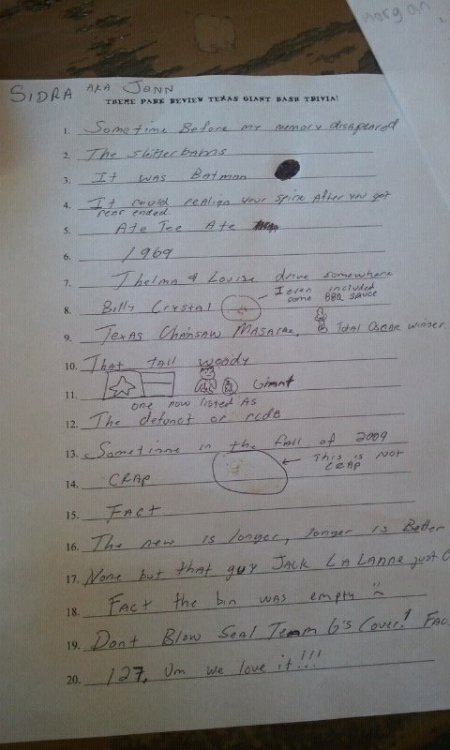 Morgan
SIDRA AKA JOHN
THEME PARK REVIEW TEXAS GIANT BASH TRIVIA!
1. Sometime Before my memory disapeared
2. The slitterbahns
3. It was Batman
4. It could realign your spine After you got
rear ended.
5. Ate Tee Ate
6. 1969
7. Thelma & Louise drive somewhere
8. Billy Crystal
I even included
some BBQ sauce
9. Texas Chainsaw Masacre, Total Oscar winner
10. That tall woody
11. Giant
one now listed As
12. The defunct or rcdb
13. Sometime in the fall of 2009
14. CRAP
This is not
CRAP
15. Fact
16. The new is longer, longer is Better
17. None but that guy JACK LALANNE just
18. Fact the bin was empty
19. Dont Blow Seal Team 6's Cover!
20. 127, Um we love it!!!